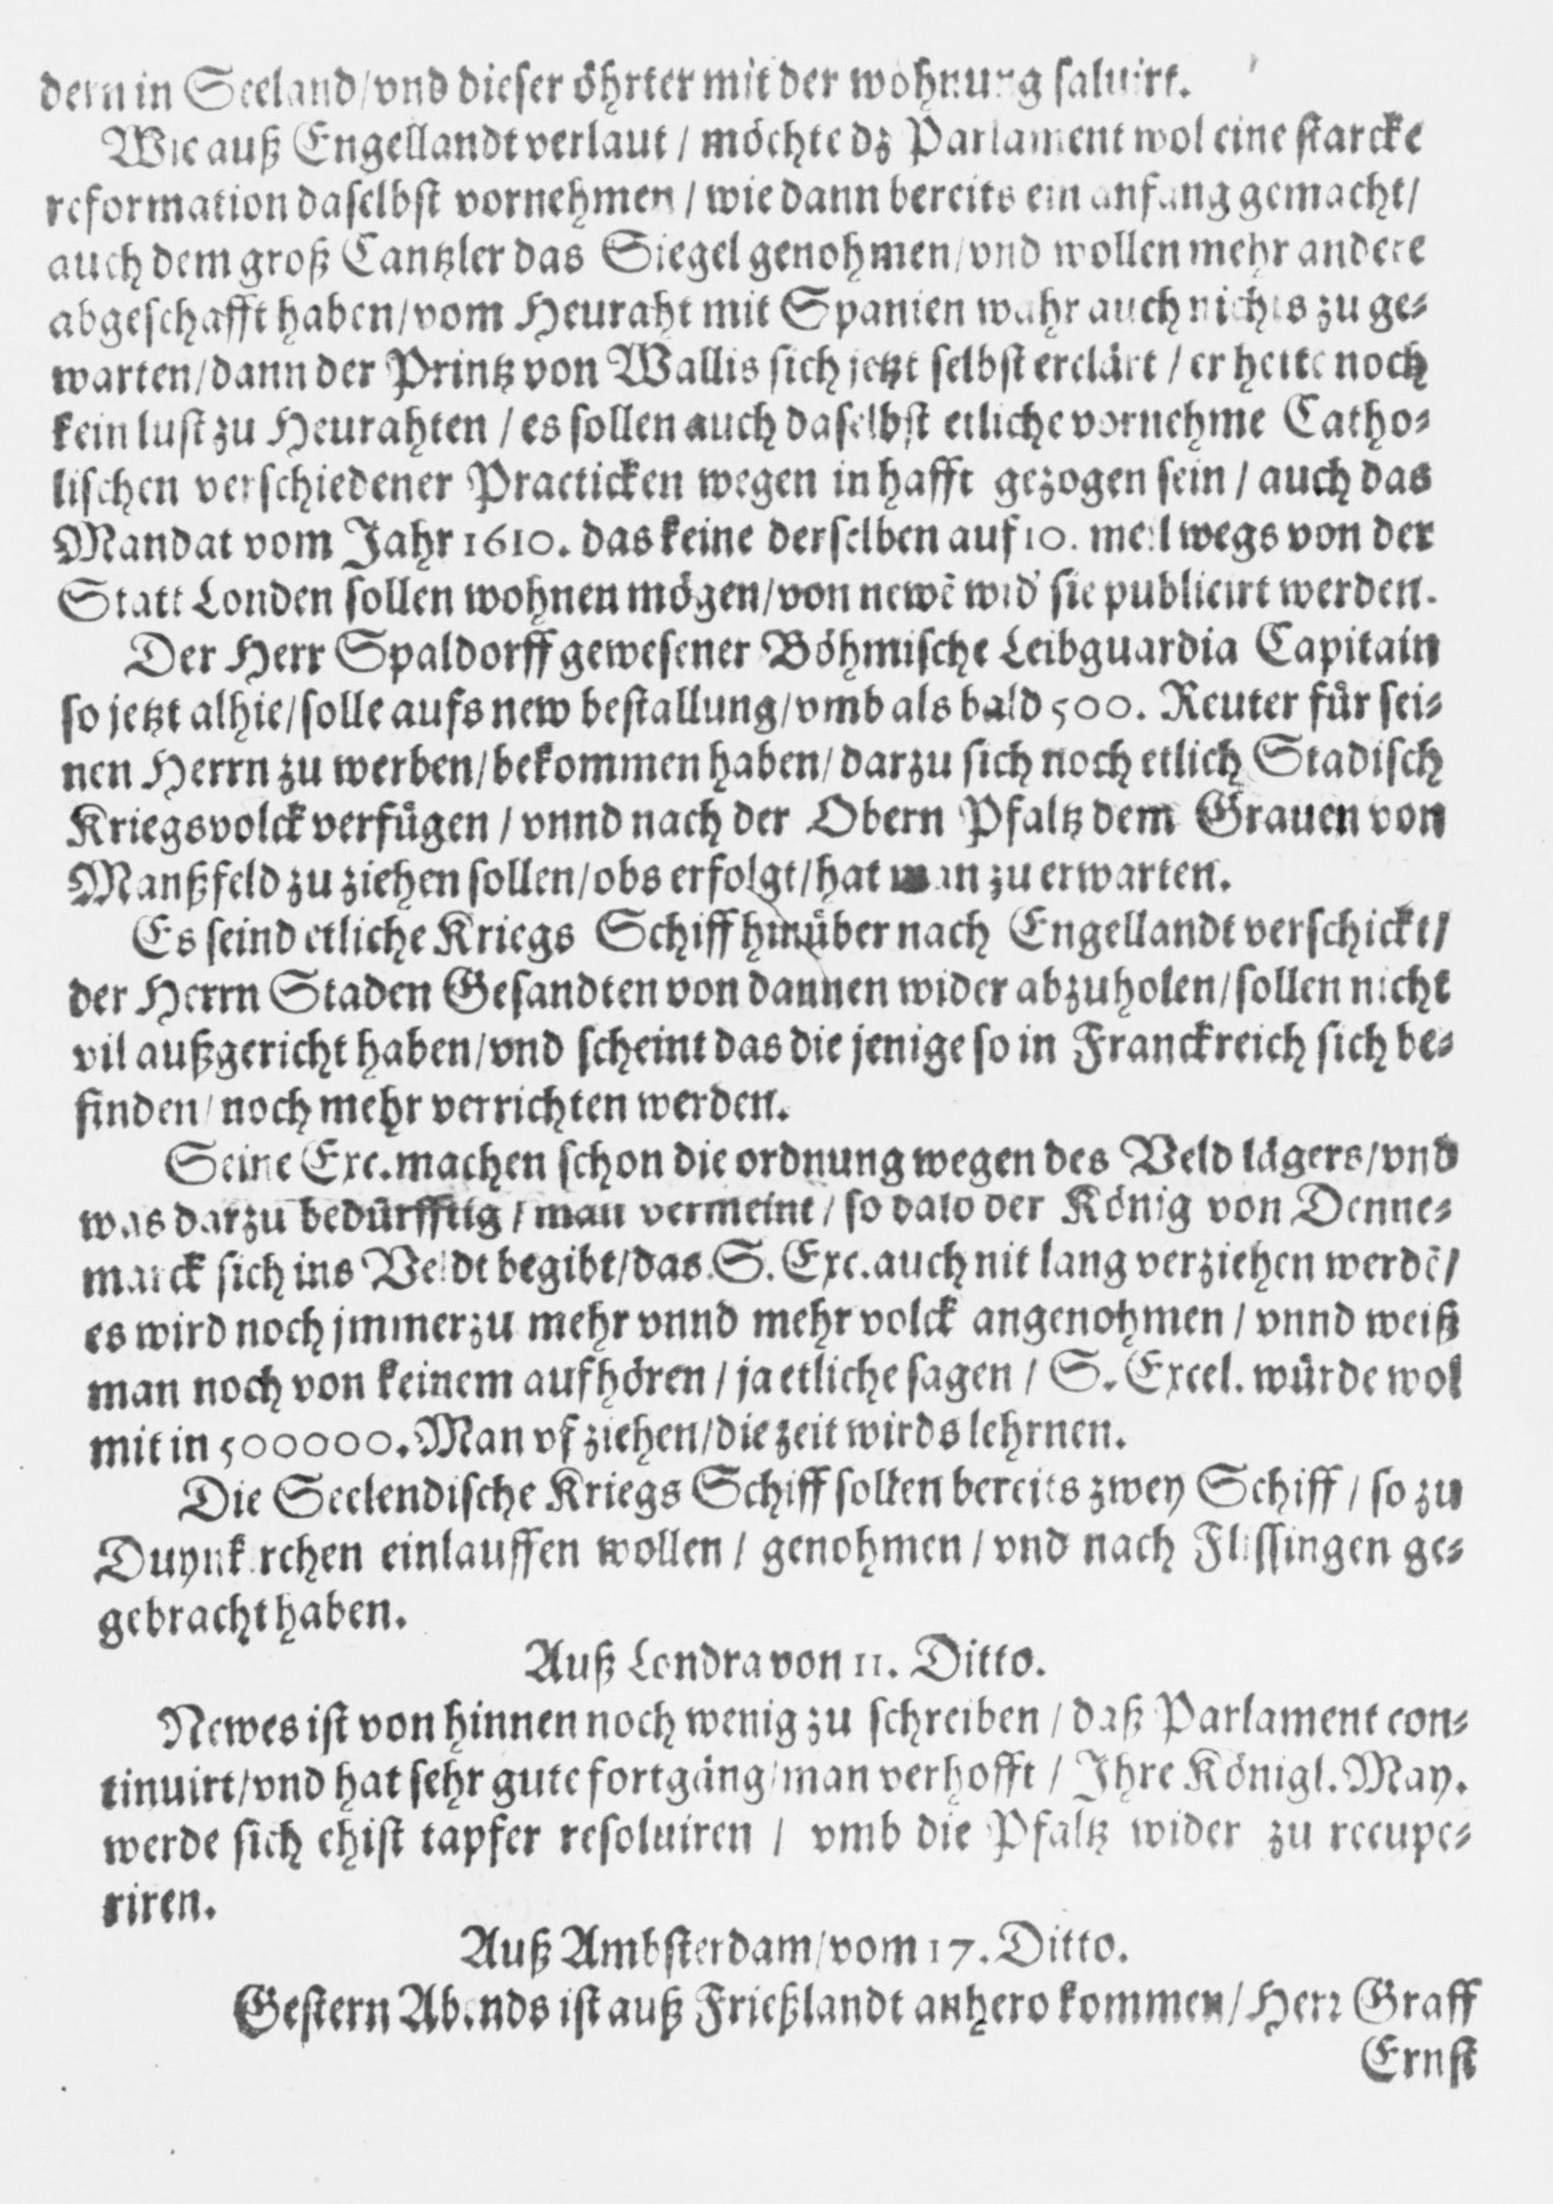 dern in Seeland/vnd dieser öhrter mit der wohnung saluirt.
Wie auß Engellandt verlaut / möchte dz Parlament wol eine starcke
reformation daselbst vornehmen / wie dann bereits ein anfang gemacht/
auch dem groß Cantzler das Siegel genohmen/vnd wollen mehr andere
abgeschafft haben/vom Heuraht mit Spanien wahr auch nichts zu ge-
warten/dann der Printz von Wallis sich jetzt selbst erclärt / er hette noch
kein lust zu Heurahten / es sollen auch daselbst etliche vornehme Catho-
lischen verschiedener Practicken wegen in hafft gezogen sein / auch das
Mandat vom Jahr 1610. das keine derselben auf 10. meil wegs von der
Statt Londen sollen wohnen mögen/von newē wid' sie publicirt werden.
Der Herr Spaldorff gewesener Böhmische Leibguardia Capitain
so jetzt alhie/solle aufs new bestallung/vmb als bald 500. Reuter für sei-
nen Herrn zu werben/bekommen haben/darzu sich noch etlich Stadisch
Kriegsvolck verfügen / vnnd nach der Obern Pfaltz dem Grauen von
Manßfeld zu ziehen sollen/obs erfolgt/hat man zu erwarten.
Es seind etliche Kriegs Schiff hinüber nach Engellandt verschickt/
der Herrn Staden Gesandten von dannen wider abzuholen/sollen nicht
vil außgericht haben/vnd scheint das die jenige so in Franckreich sich be-
finden/noch mehr verrichten werden.
Seine Exc. machen schon die ordnung wegen des Veld lägers/vnd
was darzu bedürfftig / man vermeint / so bald der König von Denne-
marck sich ins Veldt begibt/das S. Exc. auch nit lang verziehen werdē/
es wird noch jmmerzu mehr vnnd mehr volck angenohmen / vnnd weiß
man noch von keinem aufhören / ja etliche sagen / S. Excel. würde wol
mit in 500000. Man vf ziehen/die zeit wirds lehrnen.
Die Seelendische Kriegs Schiff sollen bereits zwey Schiff / so zu
Duynkirchen einlauffen wollen / genohmen / vnd nach Flissingen ge-
gebracht haben.
Auß Londra von 11. Ditto.
Newes ist von hinnen noch wenig zu schreiben / daß Parlament con-
tinuirt/vnd hat sehr gute fortgäng/man verhofft / Ihre Königl. May.
werde sich ehist tapfer resoluiren / vmb die Pfaltz wider zu recupe-
riren.
Auß Ambsterdam/vom 17. Ditto.
Gestern Abends ist auß Frießlandt anhero kommen/Herr Graff
Ernst